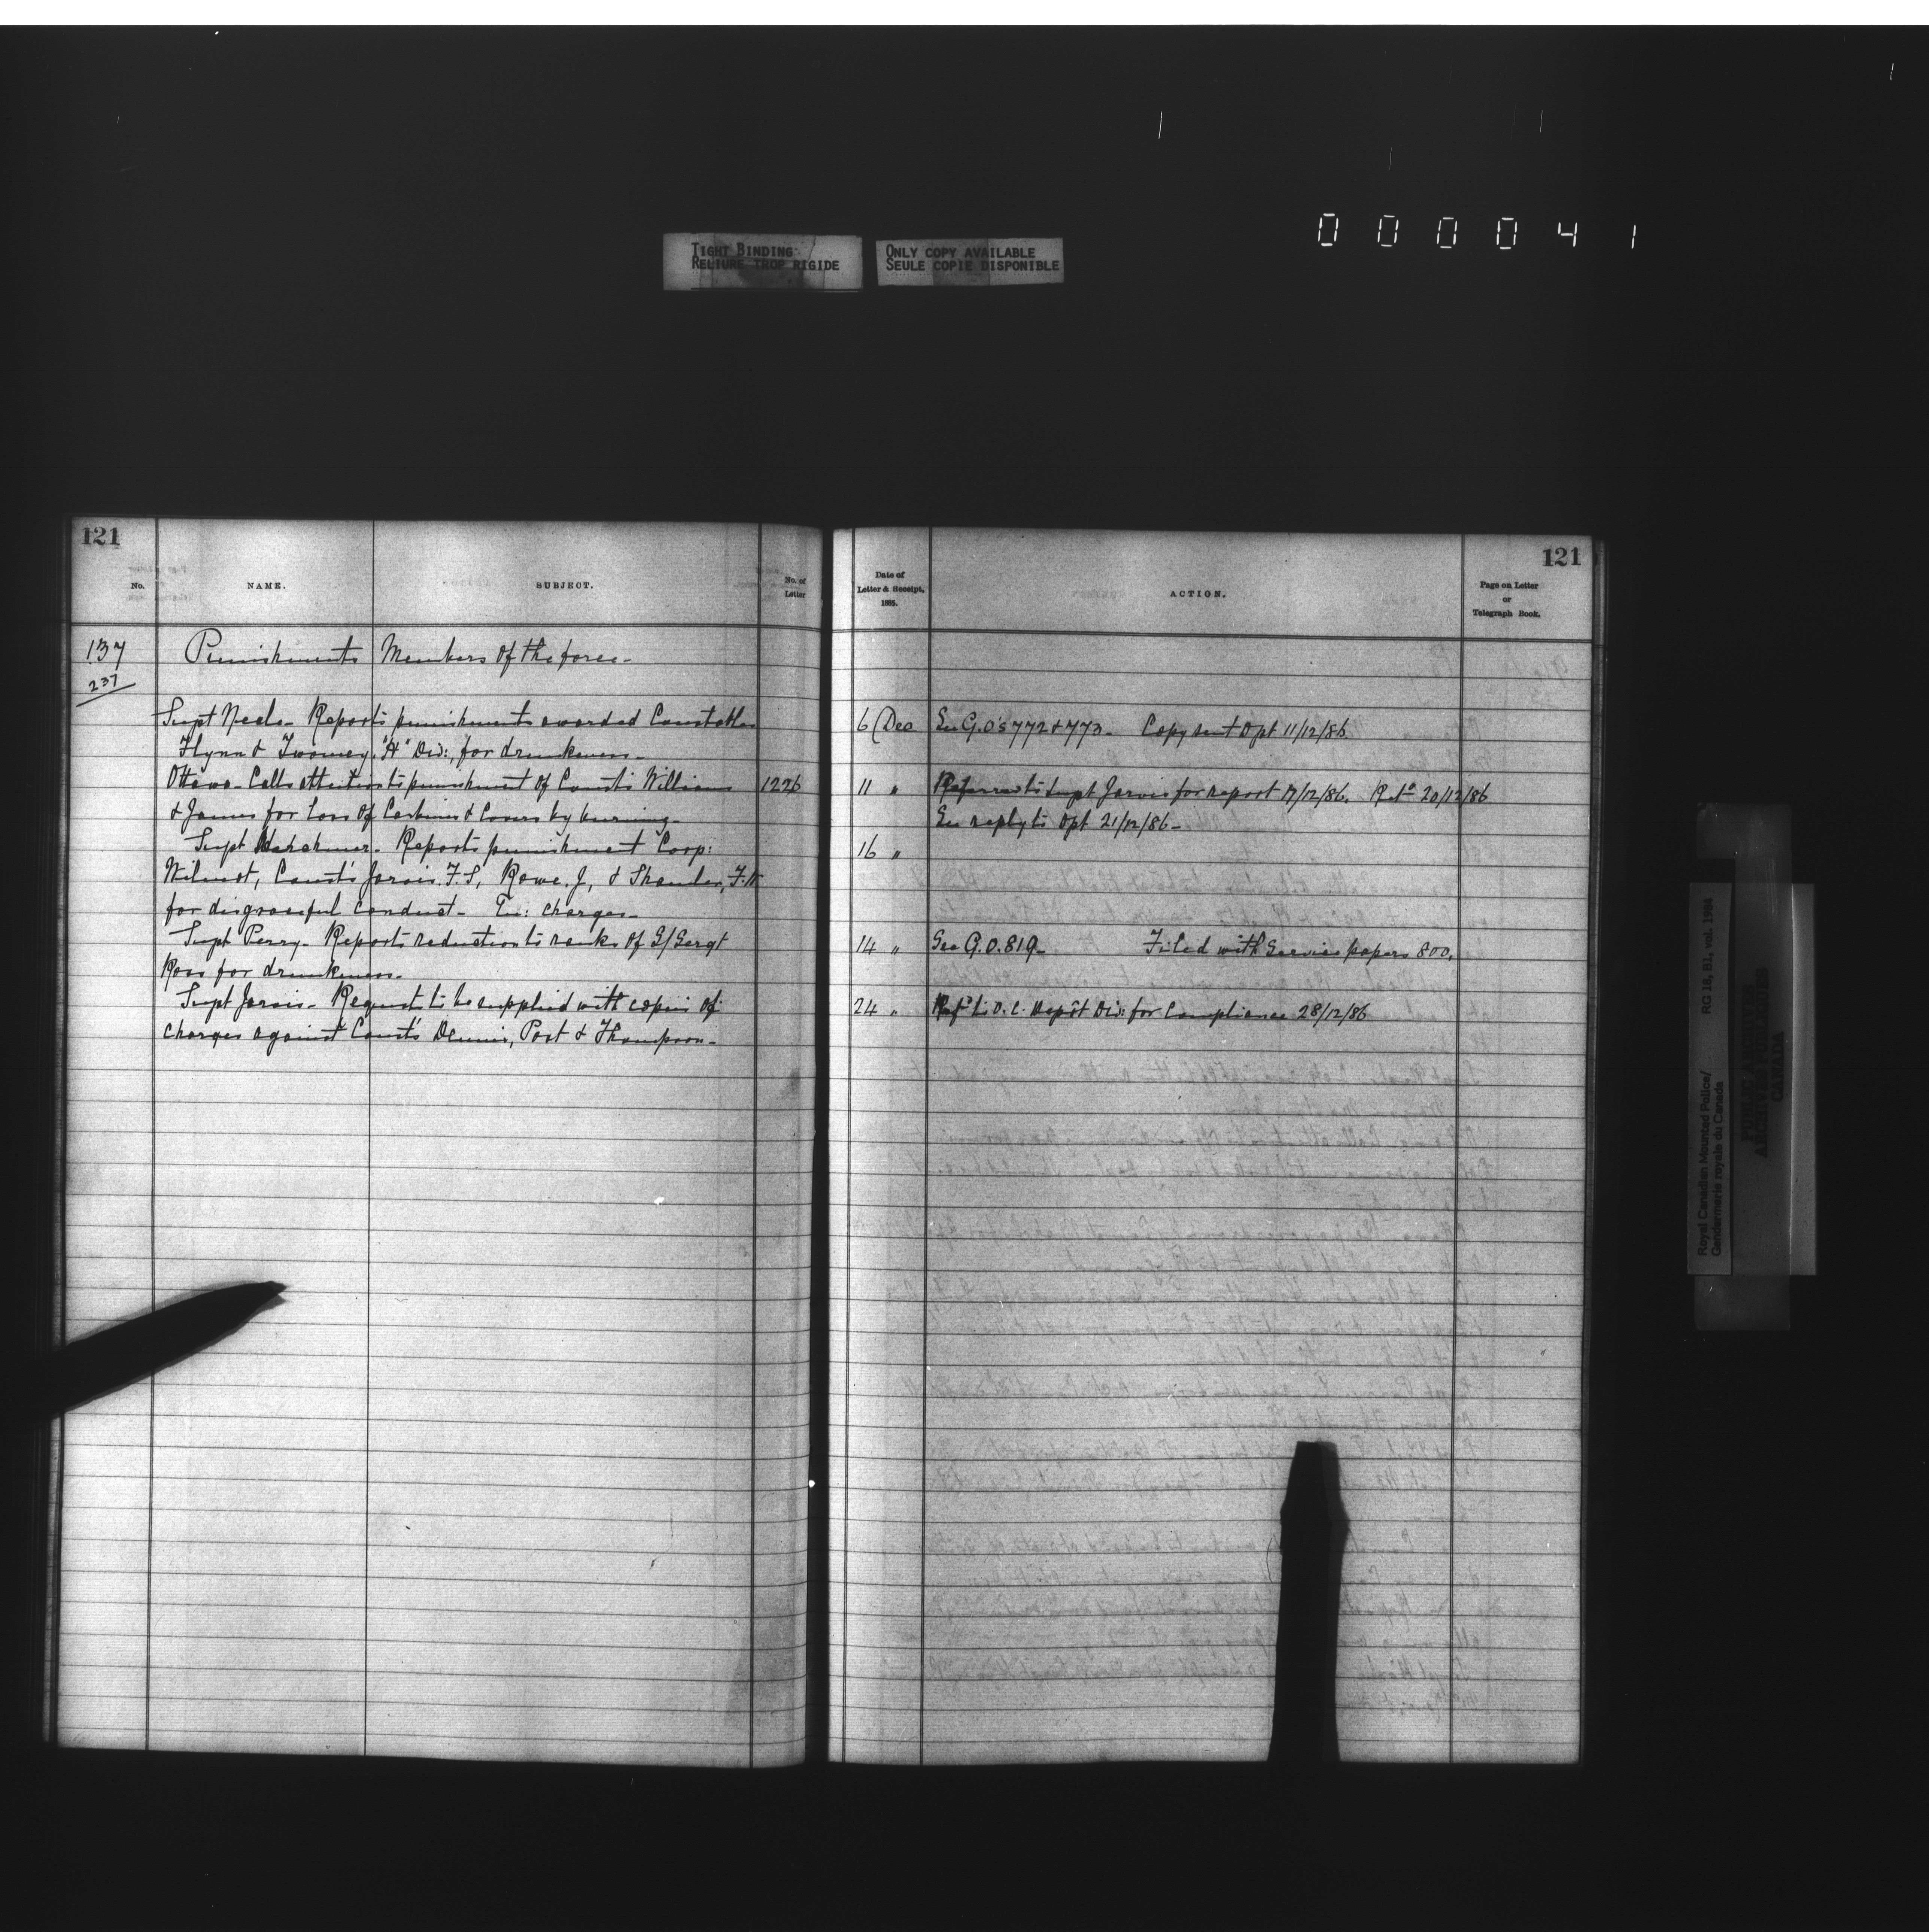 000041
TIGHT BINDING
RELIURE TROP RIGIDE
ONLY COPY AVAILABLE
SEULE COPIE DISPONIBLE
121
No.
NAME.
SUBJECT.
No. of
Letter
137
237
Punishments Members of the force-
Supt Neale- Reports punishments awarded Constables
Flynn & Twomey, "H" Div:, for drunkeness-
Ottawa- Calls attention to punishment of Const's Williams 1226
& James for Loss of Carbines & Covers by burning-
Supt Herchmer- Reports punishment Corp:
Wilmot, Const's Jarvis. F.S, Rowe. J,
for disgraceful conduct- En: Charges-
Supt Perry- Reports reduction to ranks of S/Sergt
Ross for drunkeness-
Supt Jarvis- Request to be supplied with copies of
charges against Const's Dennis, Post & Thompson-
121
Date of
Letter & Receipt,
1885.
ACTION.
Page on Letter
or
Telegraph Book.
6 Dec See G.O's 772 & 773- Copy sent Dpt 11/12/86
11 " Referred to Supt Jarvis for report 17/12/86. Ret'd 20/12/86
See reply to Dpt 21/12/86-
16 "
14 " See G.O. 819- Filed with Service papers 800.
24 " Ref'd to O.C. Depôt Div: for Compliance 28/12/86
Royal Canadian Mounted Police/
Gendarmerie royale du Canada
RG 18, B1, vol. 1984
PUBLIC ARCHIVES
ARCHIVES PUBLIQUES
CANADA